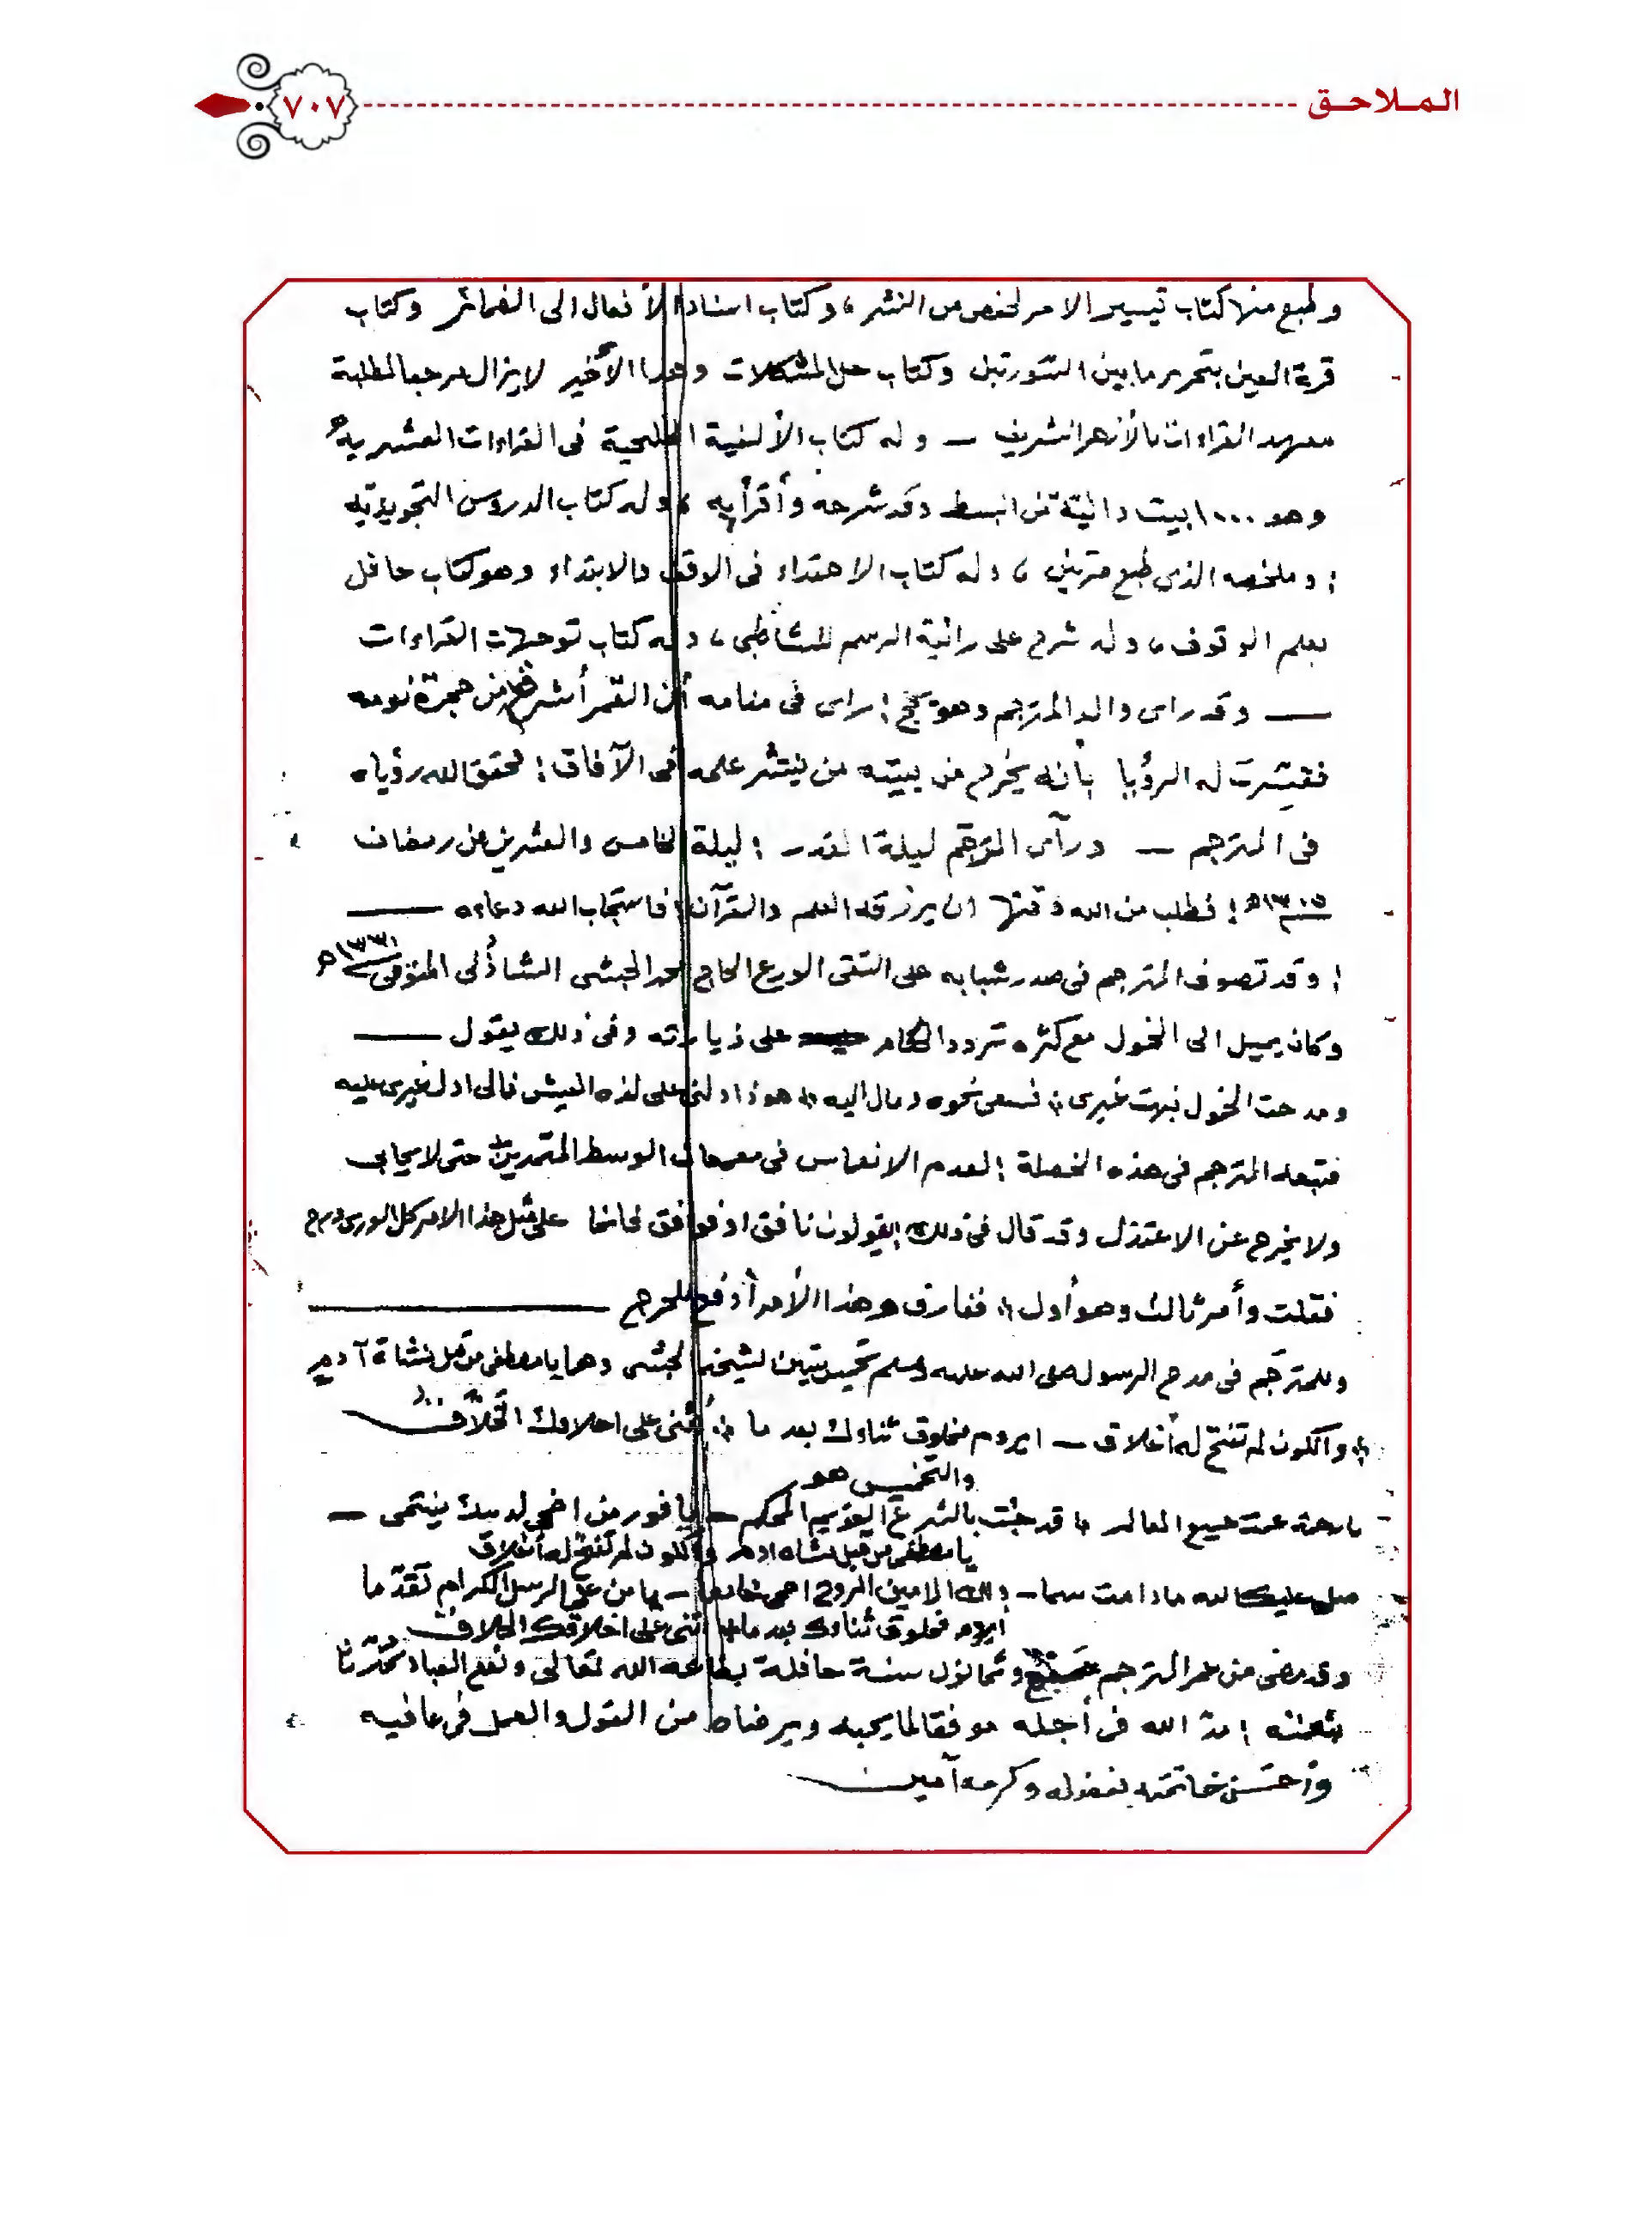 الملاحق
٧٠٧
وطبع منها كتاب تيسير الامر لحفص من النشر، وكتاب اسناد الأفعال الى الضمائر وكتاب
قرة العين بتحرير ما بين السورتين وكتاب حل المشكلات وهذا الأخير لايزال مرجعا لطلبة
معهد القراءات بالأزهر الشريف – وله كتاب الألفية الخليجية فى القراءات العشرية
وهو ١٠٠٠ بيت من البسط وقد شرحه وأقرأ به، وله كتاب الدروس التجويدية
؛ وملخصه الذى طبع مرتين، وله كتاب الاهتداء فى الوقف والابتداء وهو كتاب حافل
بعلم الوقوف، وله شرح على رائية الرسم للشاطبى، وله كتاب توجيهات القراءات
— وقد راى والد المترجم وهو بحج؛ راى فى منامه أن القمر أشرق من حجرة نومه
ففسرت له الرؤيا بأنه يخرج من بيته من ينتشر علمه فى الآفاق؛ فحقق الله رؤياه
فى المترجم – ورأى المترجم ليلة القدر؛ ليلة الخامس والعشرين من رمضان
؛ فطلب من الله وقتها ان يرزقه العلم والقرآن؛ فاستجاب الله دعاءه —
؛ وقد تصوف المترجم فى صدر شبابه على التقى الورع الحاج الحبشى الشاذلى المتوفى ١٣٣١هـ
وكان يميل الى الخمول مع كثرة تردد الحكام على زيارته وفى ذلك يقول —
ومدحت الخمول نبهت غيرى * فسعى نحوه ومال اليه * هو ذا دلنى على لذه العيش فمالى ادل غيرى عليه
فتبعه المترجم فى هذه الخصلة؛ لعدم الانغماس فى الوسط المتمدين حتى لا يحابى
ولا يخرج عن الاعتزال وقد قال فى ذلك يقولون نافق او فوافق على مثل هذا الامر كل الورى درج
فقلت وأمر ثالث وهو أول * ففارق وهذا الأمر أدفع للحرج —
وللمترجم فى مدح الرسول صلى الله عليه وسلم تخميس بيتين لشيخه الحبشى وهما يا مصطفى من قبل نشأة آدم
* والكون لم تفتح له أغلاق – ايروم مخلوق ثناءك بعد ما * أثنى على اخلاقك الخلاق
والتخميس هو
يا رحمة عمت جميع العالم * قد جئت بالشرع القويم المحكم – يا فوز من اضحى ينتمى –
يا مصطفى من قبل نشاة ادم والكون لم تفتح له أغلاق
صلى عليك الله ما دامت سما – الامين الروح اضحى خادما – يا من على الرسل الكرام تقدما
أيروم مخلوق ثناءك بعد ما أثنى على اخلاقك الخلاق
وقد مضى من عمر المترجم وثمانون سنة حافلة بطاعة الله تعالى ونفع العباد
؛ مدّ الله فى أجله موفقا لما يحبه ويرضاه من القول والعمل فى عافيه
وأحسن خاتمته بفضله وكرمه آمين